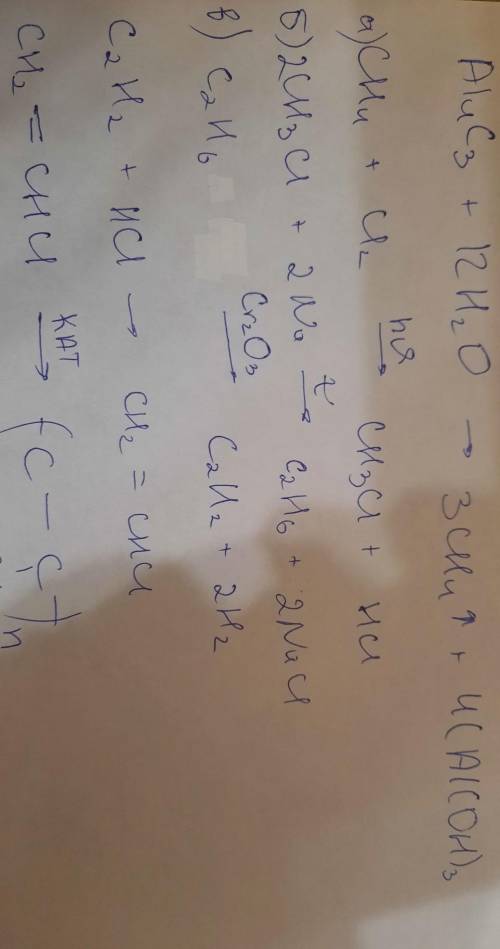 Al4C3 + 12H2O → 3CH4↑ + 4(Al(OH)3
а) CH4 + Cl2 hν → CH3Cl + HCl
б) 2CH3Cl + 2Na t → C2H6 + 2NaCl
в) C2H6 Cr2O3 → C2H2 + 2H2
C2H2 + HCl → CH2 = CHCl
CH2 = CHCl КАТ → (C — C)n